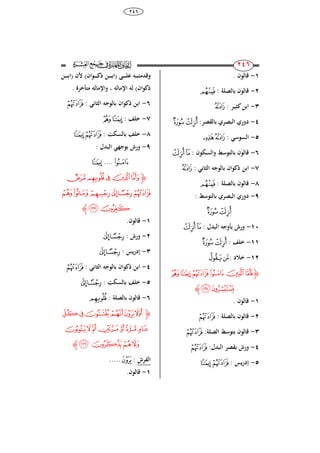 ٢٤٦
١- قالون .
٢- قالون بالصلة : فَمِنْهُمُ
٣- ابن كثير : زَادَتْهُ
٤- دوري البصري بالقصر: أُنزِلَتْ سُورَةٌ
٥- السوسي : زَادَتْهُ هَذِهِ
٦- قالون بالتوسط والسكون : مَا أُنزِلَتْ
٧- ابن ذكوان بالوجه الثاني : زَادَتْهُ
٨- قالون بالصلة : فَمِنْهُمُ
٩- دوري البصري بالتوسط :
أُنزِلَتْ سُورَةٌ
١٠- ورش بأوجه البدل : مَا أُنزِلَتْ
١١- خلف : أُنزِلَتْ سُورَةٌ
١٢- خلاد : مَن يَقُولُ
﴿ فَأَمَّا الَّذِينَ ءَامَنُوا فَزَادَتْهُمْ إِيمَانًا وَهُمْ
يَسْتَبْشِرُونَ ﴾
١- قالون .
٢- قالون بالصلة : فَزَادَتْهُمُ
٣- قالون بتوسط الصلة: فَزَادَتْهُمُ
٤- ورش بقصر البدل: فَزَادَتْهُمُ
٥- إدريس : فَزَادَتْهُمْ إِيمَانًا
وقدمتـه علـى (ابـن ذكـوان) لأن (ابـن
ذكوان) له الإماله ، والإماله متأخرة .
٦- ابن ذكوان بالوجه الثاني : فَزَادَتْهُمْ
٧- خلف : إِيمَانًا وَهُمْ
٨- خلف بالسكت : فَزَادَتْهُمْ إِيمَانًا
٩- ورش بوجهي البدل :
ءَامَنُوا .... إِيمَانًا
﴿ وَأَمَّا الَّذِينَ فِي قُلُوبِهِم مَّرَضٌ
فَزَادَتْهُمْ رِجْسًا إِلَى رِجْسِهِمْ وَمَاتُوا وَهُمْ
كَافِرُونَ ﴾
١- قالون.
٢- ورش : رِجْسًا إِلَى
٣- إدريس : رِجْسًا إِلَى
٤- ابن ذكوان بالوجه الثاني : فَزَادَتْهُمْ
٥- خلف بالسكت : رِجْسًا إِلَى
٦- قالون بالصلة : قُلُوبِهِم
﴿ أَوَلَا يَرَوْنَ أَنَّهُمْ يُفْتَنُونَ فِي كُلِّ
عَامٍ مَّرَّةً أَوْ مَرَّتَيْنِ ثُمَّ لَا يَتُوبُونَ
وَلَا هُمْ يَذَّكَّرُونَ ﴾
الفرش : يَرَوْنَ .....
١- قالون.
٢٤٦